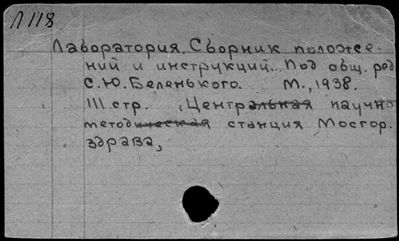 Л 118
Лаборатория. Сборник положе-
ний и инструкций. Под общ. ред
С.Ю. Беленького. М., 1938.
111 стр. , Центральная научно
методическая станция Мосгор.
здрава,